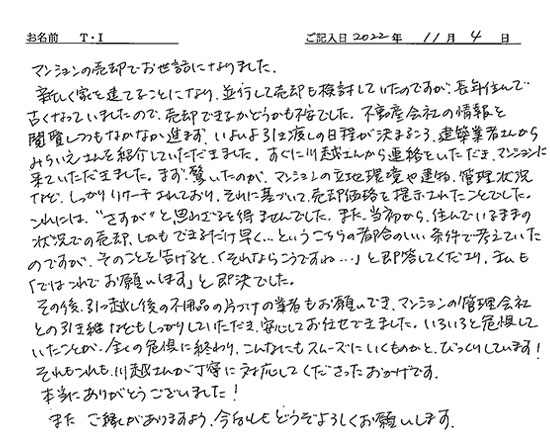 お名前 T・I ご記入日 2022年 11月 4日
マンションの売却でお世話になりました。
新しく家を建てることになり、並行して売却も検討していたのですが、長年住んで
古くなっていましたので、売却できるかどうかも不安でした。不動産会社の情報を
閲覧しつつもなかなか進まず、いよいよ引き渡しの日程が決まるころ、建築業者さんから
みらいえさんを紹介していただきました。すぐに川越さんから連絡をいただき、マンションに
来ていただきました。まず、驚いたのが、マンションの立地環境や建物、管理状況
など、しっかりリサーチされており、それに基づいて、売却価格を提示されたことでした。
これには、“さすが”と思わざるを得ませんでした。また、当初から、住んでいるままの
状況での売却、しかもできるだけ早く…というこちらの都合のいい条件で考えていた
のですが、そのことを告げると、「それならこうですね…」と即答してくださり、私も
「ではこれでお願いします」と即決でした。
その後、引っ越し後の不用品の片づけの業者もお願いでき、マンションの管理会社
との引き継ぎなどもしっかりしていただき、安心してお任せできました。いろいろと危惧して
いたことが、全くの危惧に終わり、こんなにもスムーズにいくものかと、びっくりしています!
それもこれも、川越さんが丁寧に対応してくださったおかげです。
本当にありがとうございました!
また ご縁がありますよう、今後ともどうぞよろしくお願いします.